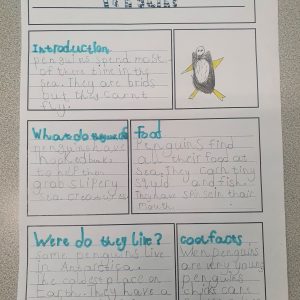 Introduction
penguins spend most
of there time in the
sea. They are brids
but they carnt
fly.
What do they
penguins have
hooked
to help them
grab slipery
sea creatures
Food
Penguins find
all their food at
sea. They cach tiny
squid and fish.
They have in their
mouth
Were do they live?
some penguins live
in Antartica.
the coldest place on
Earth. They have a
cool facts
Wen penguins
are very young
penguins
chicks